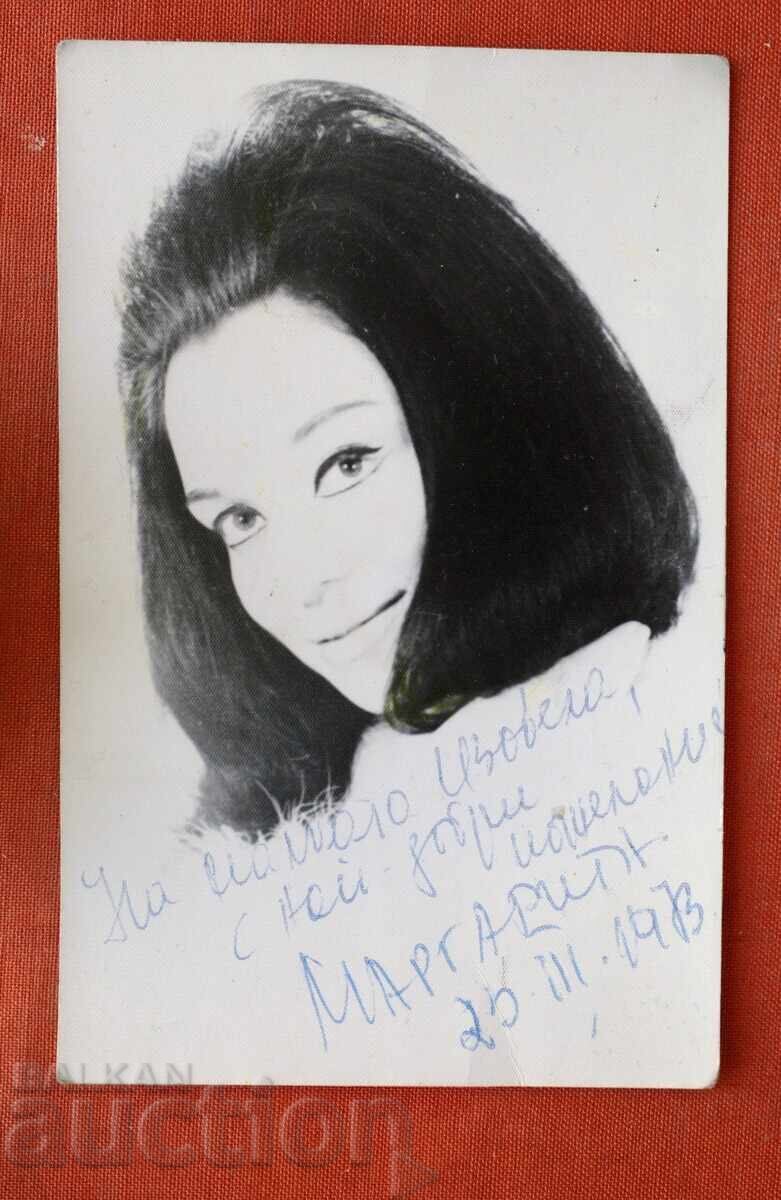 На малката Изабела,
с най-добри пожелания
МАРГАРИТА.
25.III.1973
BALKAN
auction